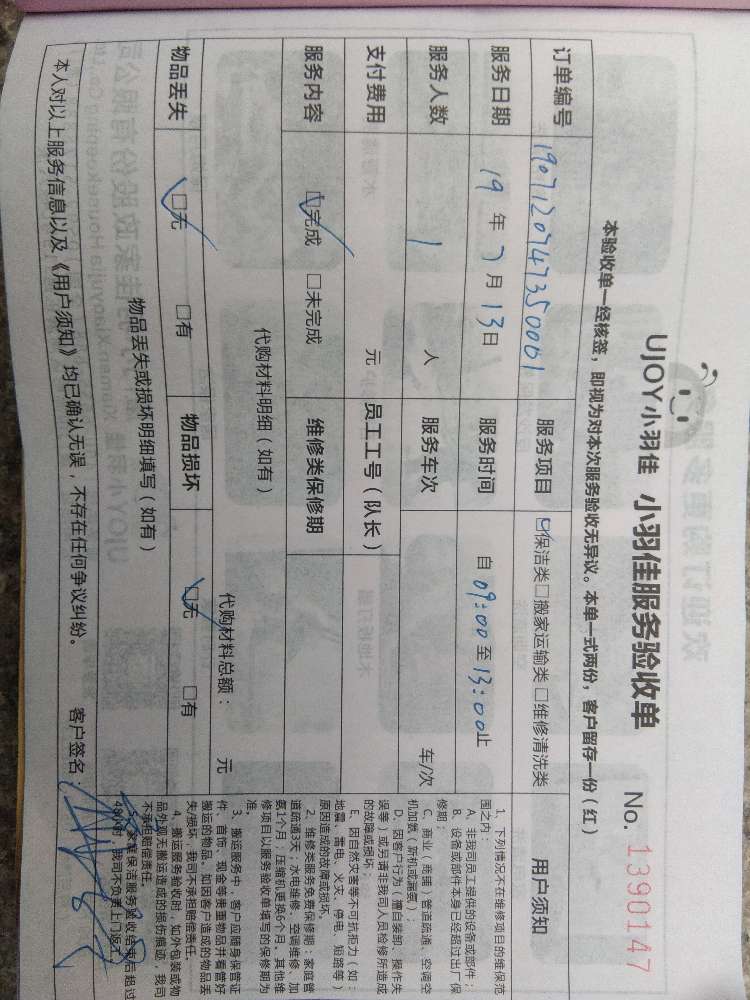 UJOY小羽佳 小羽佳服务验收单 No. 1390147
本验收单一经核签，即视为对本次服务验收无异议。本单一式两份，客户留存一份（红）
订单编号 1907120947350001 服务项目 ☑保洁类□搬家运输类□维修清洗类
服务日期 19年7月13日 服务时间 自09:00至13:00止
服务人数 1 人 服务车次 车/次
支付费用 元 员工工号（队长）
服务内容 ☑完成 □未完成 维修类保修期
代购材料明细（如有）
代购材料总额： 元
物品丢失 ☑无 □有 物品损坏 ☑无 □有
物品丢失或损坏明细填写（如有）
本人对以上服务信息以及《用户须知》均已确认无误，不存在任何争议纠纷。 客户签名：
用户须知
1、下列情况不在维修项目的维保范
围之内：
A、非我司员工提供的设备或部件；
B、设备或部件本身已经超过出厂保
修期；
C、商业（商铺）管道疏通、空调充
机加氨（新机或漏氨）；
D、因客户行为（擅自装卸、操作失
误等）或另请非我司人员检修所造成
的故障或损坏；
E、因自然灾害等不可抗拒力（如：
地震、雷电、火灾、停电、短路等）
原因造成的故障或损坏。
2、维修类服务免费保修期：家庭管
道疏通3天；水电维修、空调维修、加
氨1个月；压缩机更换6个月。其他维
修项目以服务验收单填写的保修期为
准。
3、搬运服务中，客户应随身保管证
件、首饰、现金等贵重物品并看管好
搬运的物品。如因客户造成的物品丢
失/损坏，我司不承担赔偿责任。
4、搬运服务验收时，如外包装或物
品外观无搬运造成的损伤痕迹，我司
不承担赔偿责任。
5、家庭保洁服务验收结束后超过
48小时，我司不负责上门返工。